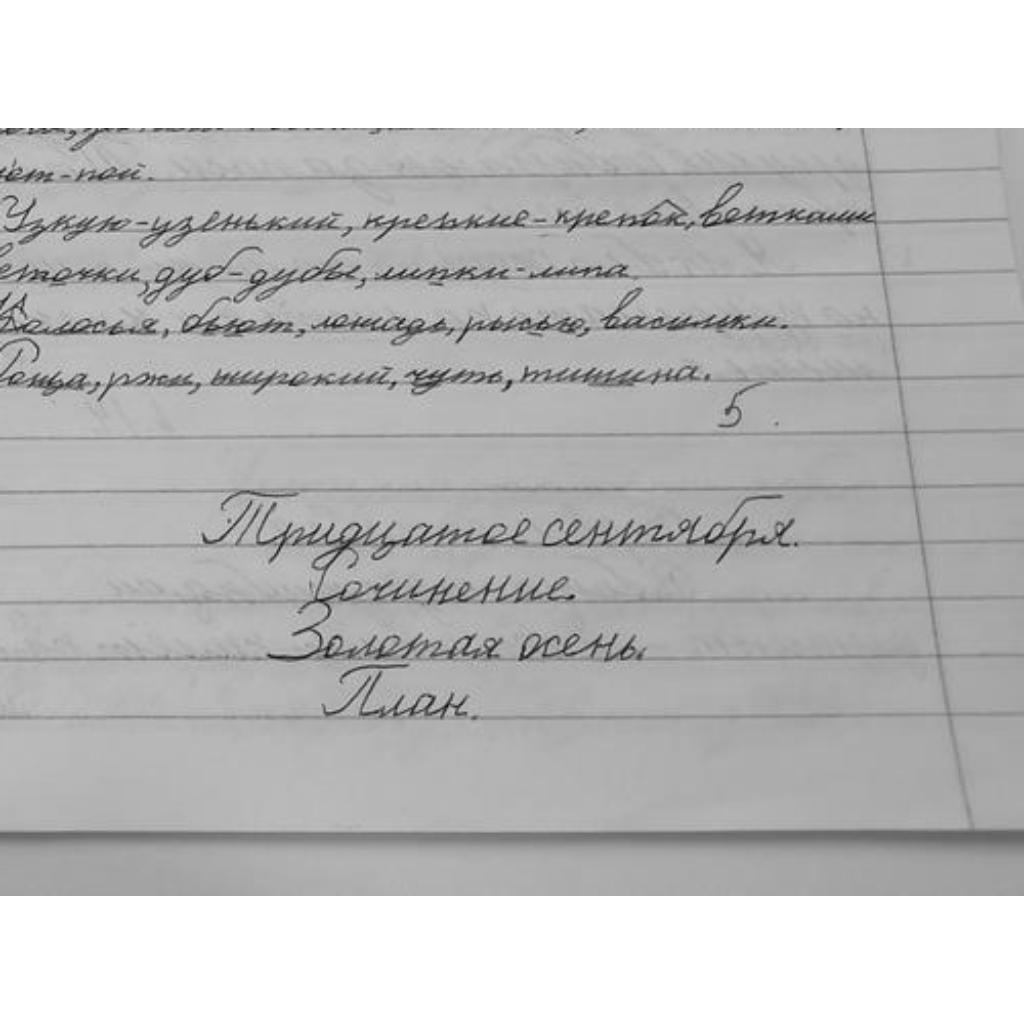 -пой.
Узкую-узенький, крепкие-крепок, ветками
веточки, дуб-дубы, липки-липа
Колосья, бьют, лошадь, рысью, васильки.
Роща, ржи, широкий, чуть, тишина.
5.
Тридцатое сентября.
Сочинение.
Золотая осень.
План.